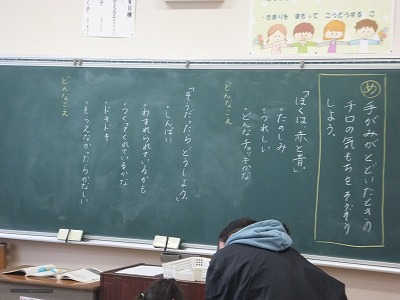 きまりを まもって こうどうする こ
め 手がみが とどいたときの
チロの気もちを そうぞう
しよう。
どんなこえ
「ぼくは 赤と青。
・たのしみ
・うれしい
・どんなチョッキかな
「そうだったら どうしよう。
・しんぱい
・わすれられているかも
・つくってくれているかな
・ドキドキ
・もらえなかったらかなしい
どんなこえ